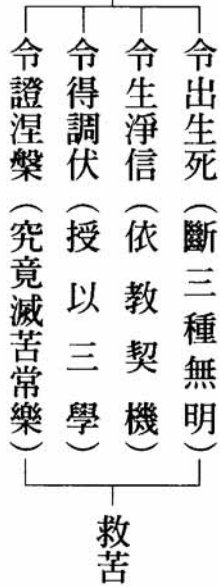 令出生死（斷三種無明）
令生淨信（依教契機）
令得調伏（授以三學）
令證涅槃（究竟滅苦常樂）
救苦